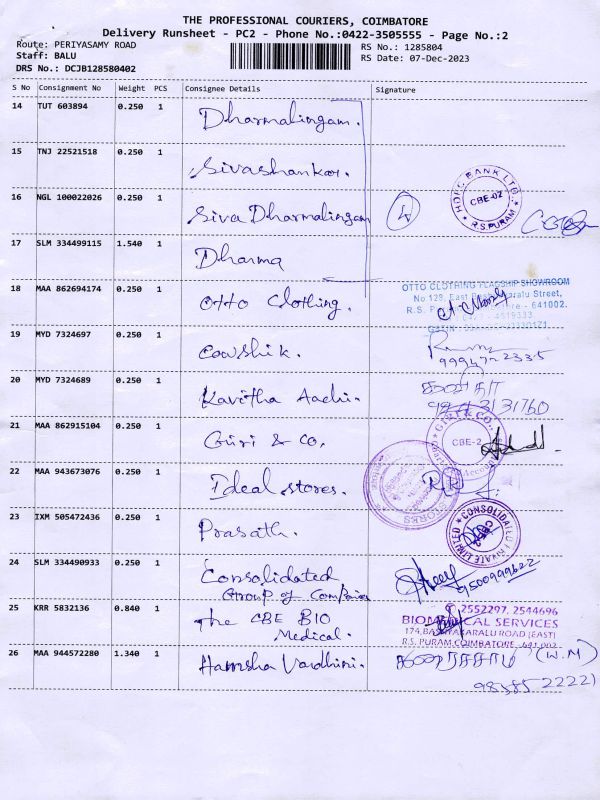 THE PROFESSIONAL COURIERS, COIMBATORE
Delivery Runsheet - PC2 - Phone No.:0422-3505555 - Page No.:2
Route: PERIYASAMY ROAD
RS No.: 1285804
Staff: BALU
RS Date: 07-Dec-2023
DRS No.: DCJB128580402
S No Consignment No Weight PCS Consignee Details Signature
14 TUT 603894 0.250 1 Dharmalingam.
15 TNJ 22521518 0.250 1 Sivashankar.
HDFC BANK LTD. CBE-02 R.S.PURAM
16 NGL 100022026 0.250 1 Siva Dharmalingam 4
17 SLM 334499115 1.540 1 Dharma
18 MAA 862694174 0.250 1 Otto Clothing.
OTTO CLOTHING FLAGSHIP SHOWROOM
No.128, East Street,
R.S. - 641002.
19 MYD 7324697 0.250 1 Coushik.
99947 22335
20 MYD 7324689 0.250 1 Kavitha Aachi.
21 MAA 862915104 0.250 1 Giri & Co.
GIRI & CO. CBE-2
22 MAA 943673076 0.250 1 Ideal stores.
STORES
23 IXM 505472436 0.250 1 Prasath.
CONSOLIDATED PRIVATE LIMITED
24 SLM 334490933 0.250 1 Consolidated
Group of Companies
9500999622
25 KRR 5832136 0.840 1 The CBE BIO
Medical.
2552297, 2544696
BIOMEDICAL SERVICES
174, ROAD (EAST)
R.S. PURAM, COIMBATORE - 641 002
26 MAA 944572280 1.340 1 Hamsha Vardhini.
(W.M)
98585 22221